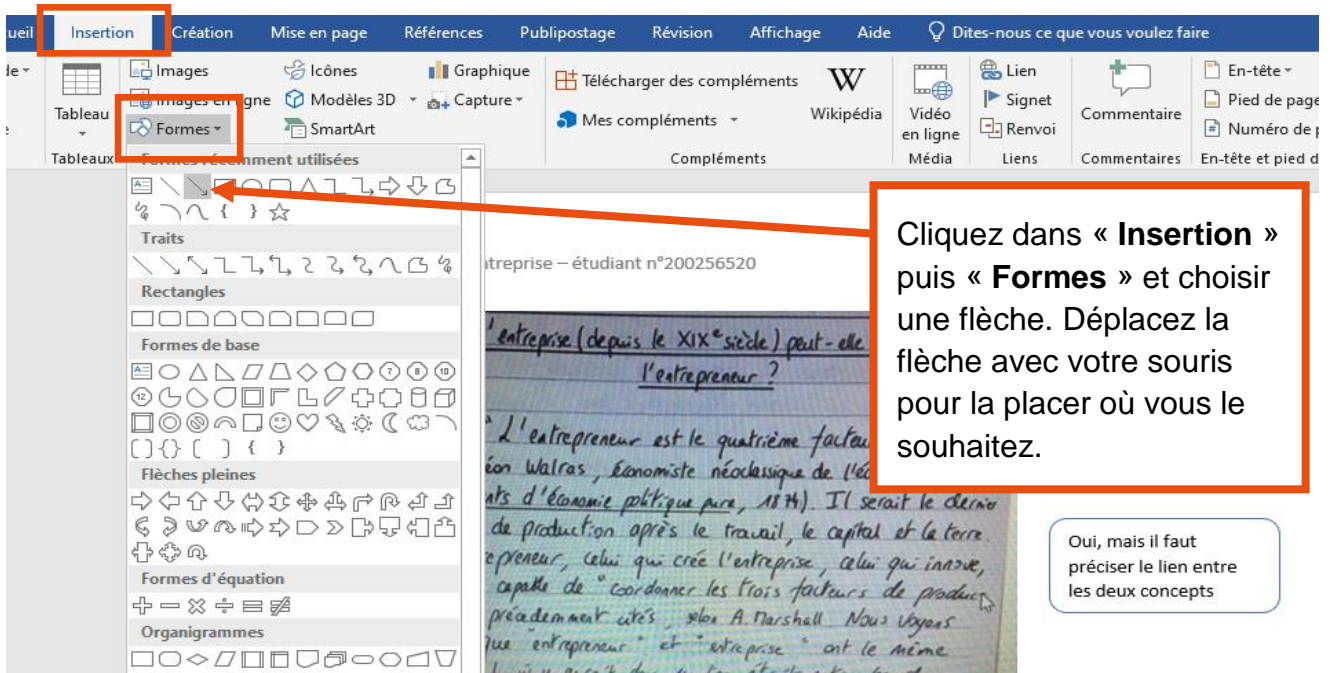 ueil Insertion Création Mise en page Références Publipostage Révision Affichage Aide Dites-nous ce que vous voulez faire
Images Icônes Graphique Télécharger des compléments W Lien En-tête
Tableau Images en ligne Modèles 3D Capture Mes compléments Wikipédia Vidéo en ligne Signet Commentaire Pied de page
Formes SmartArt Renvoi Numéro de p
Tableaux Compléments Média Liens Commentaires En-tête et pied d
Formes récemment utilisées
Traits
Rectangles
Formes de base
7 8 10
12
Flèches pleines
Formes d'équation
Organigrammes
Cliquez dans « Insertion »
puis « Formes » et choisir
une flèche. Déplacez la
flèche avec votre souris
pour la placer où vous le
souhaitez.
ntreprise – étudiant n°200256520
l'entreprise (depuis le XIXe siècle) peut-elle
l'entrepreneur ?
L'entrepreneur est le quatrième facteu
éon Walras, économiste néoclassique de l'éc
nts d'économie politique pure, 1874). Il serait le dernier
de production après le travail, le capital et la terre.
epreneur, celui qui crée l'entreprise, celui qui innove,
capable de "coordonner les trois facteurs de produc
précédemment cités, selon A. Marshall. Nous voyons
que "entrepreneur" et "entreprise" ont le même
Oui, mais il faut
préciser le lien entre
les deux concepts